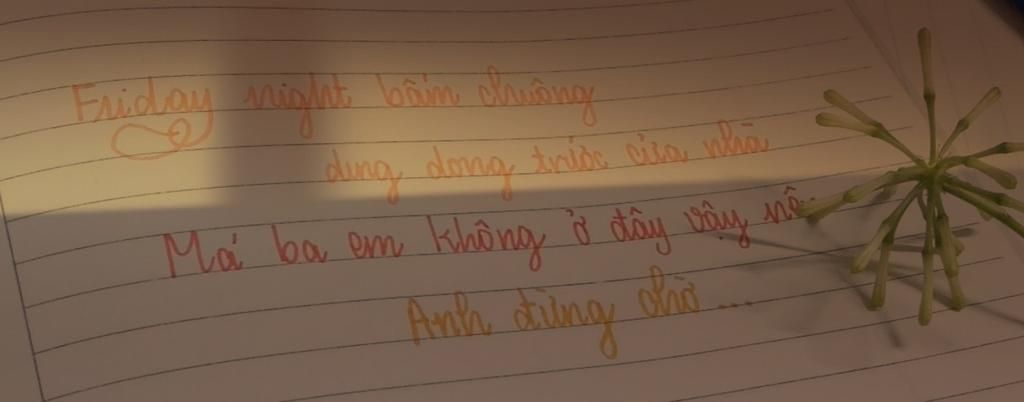 Friday night bấm chuông
dung dong trước cửa nhà
Má ba em không ở đây vậy nên
Anh đừng chờ ...